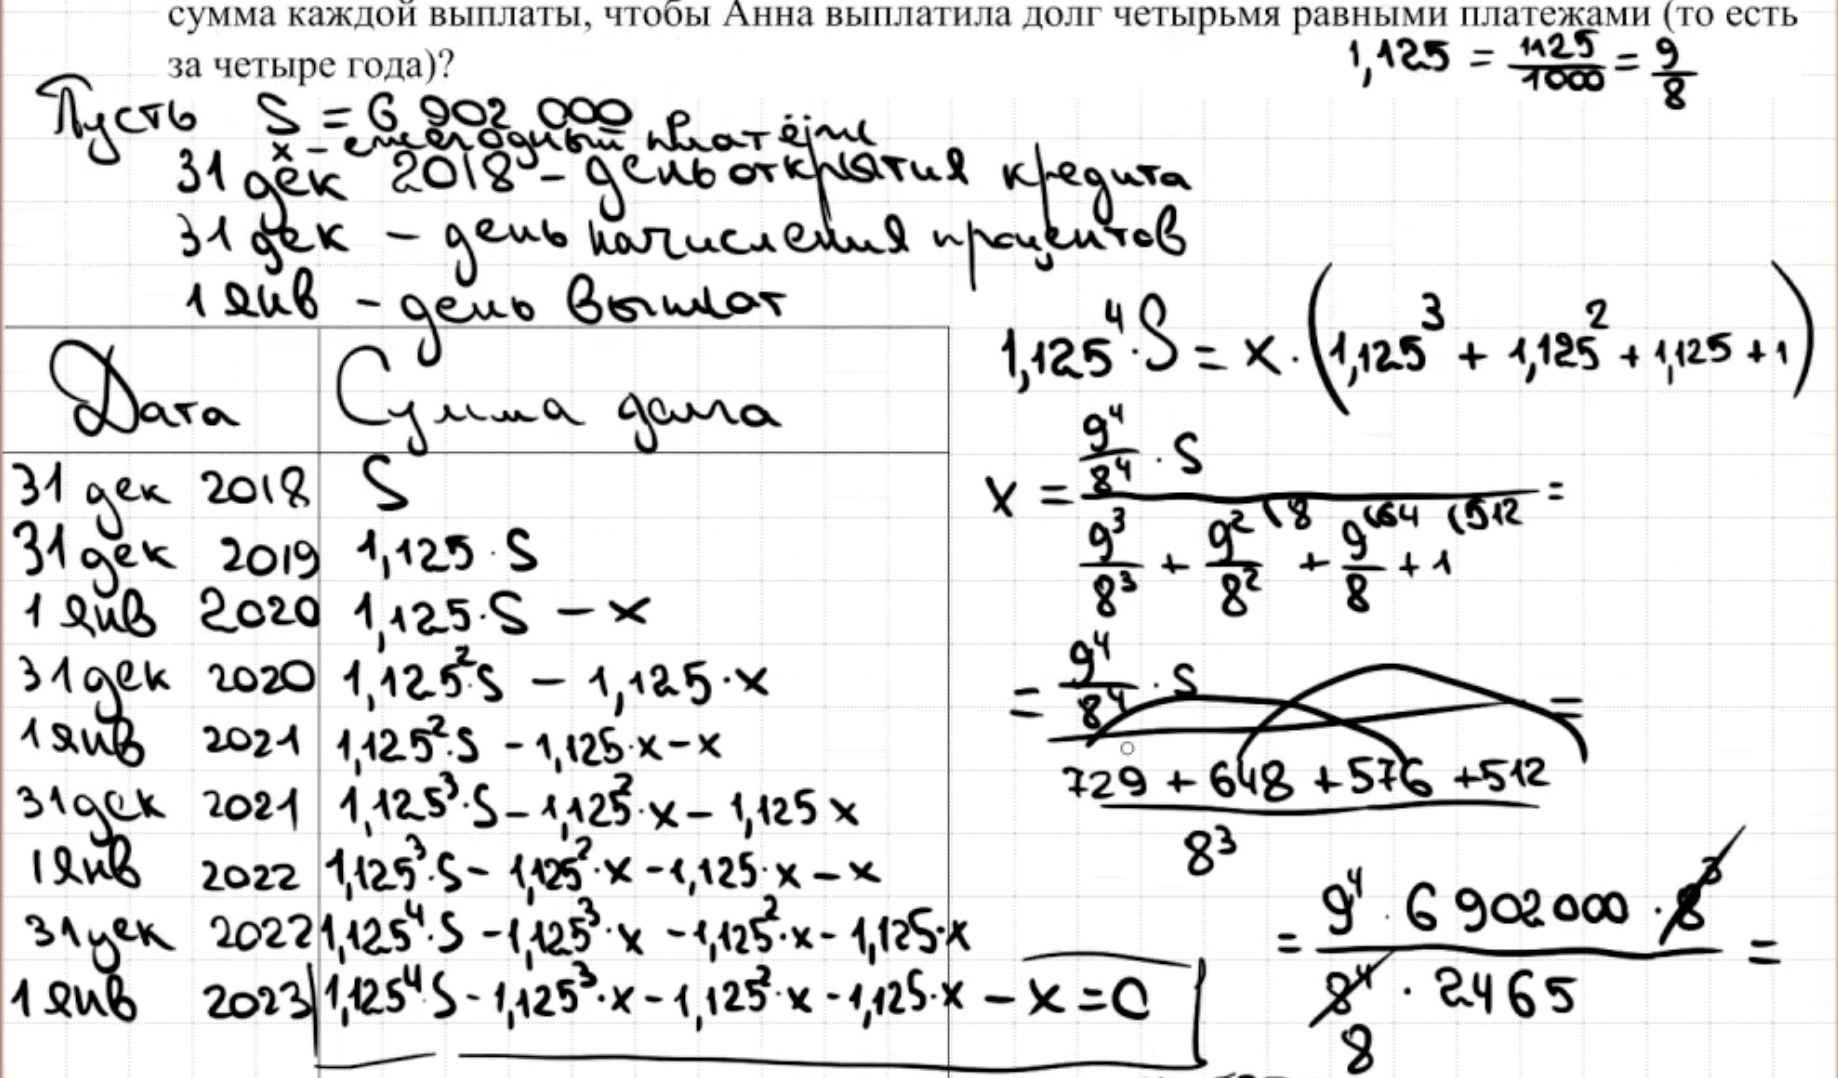 сумма каждой выплаты, чтобы Анна выплатила долг четырьмя равными платежами (то есть
за четыре года)?
1,125 = 1125/1000 = 9/8
Пусть S = 6 902 000
x – ежегодный платёж
31 дек 2018 – день открытия кредита
31 дек – день начисления процентов
1 янв – день выплат
Дата Сумма долга
31 дек 2018 S
31 дек 2019 1,125·S
1 янв 2020 1,125·S – x
31 дек 2020 1,125²·S – 1,125·x
1 янв 2021 1,125²·S – 1,125·x – x
31 дек 2021 1,125³·S – 1,125²·x – 1,125x
1 янв 2022 1,125³·S – 1,125²·x – 1,125·x – x
31 дек 2022 1,125⁴·S – 1,125³·x – 1,125²·x – 1,125·x
1 янв 2023 1,125⁴·S – 1,125³·x – 1,125²·x – 1,125·x – x = 0
1,125⁴·S = x·(1,125³ + 1,125² + 1,125 + 1)
x = 9⁴/8⁴ · S
9³/8³ + 9²/8² (8 + 9/8 (64 + 1 (512 =
= 9⁴/8⁴ · S =
729 + 648 + 576 + 512
8³
= 9⁴ · 6 902 000 · 8³ =
8⁴ · 2465
8